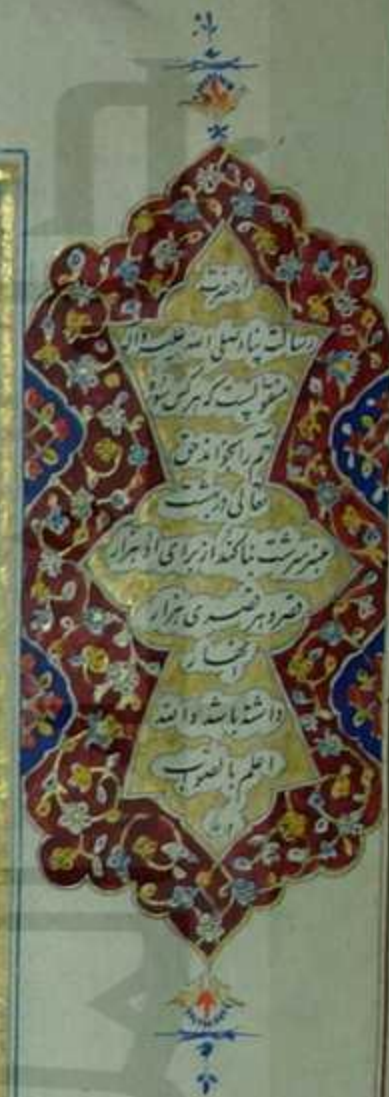 از حضرت
رسالت پناه صلی الله علیه واله
منقولست که هرکس سوره
را بخواند حق
تعالی در بهشت
عنبر سرشت بنا کند از برای او هزار
قصر و هر قصری هزار
داشته باشد والله
اعلم بالصواب